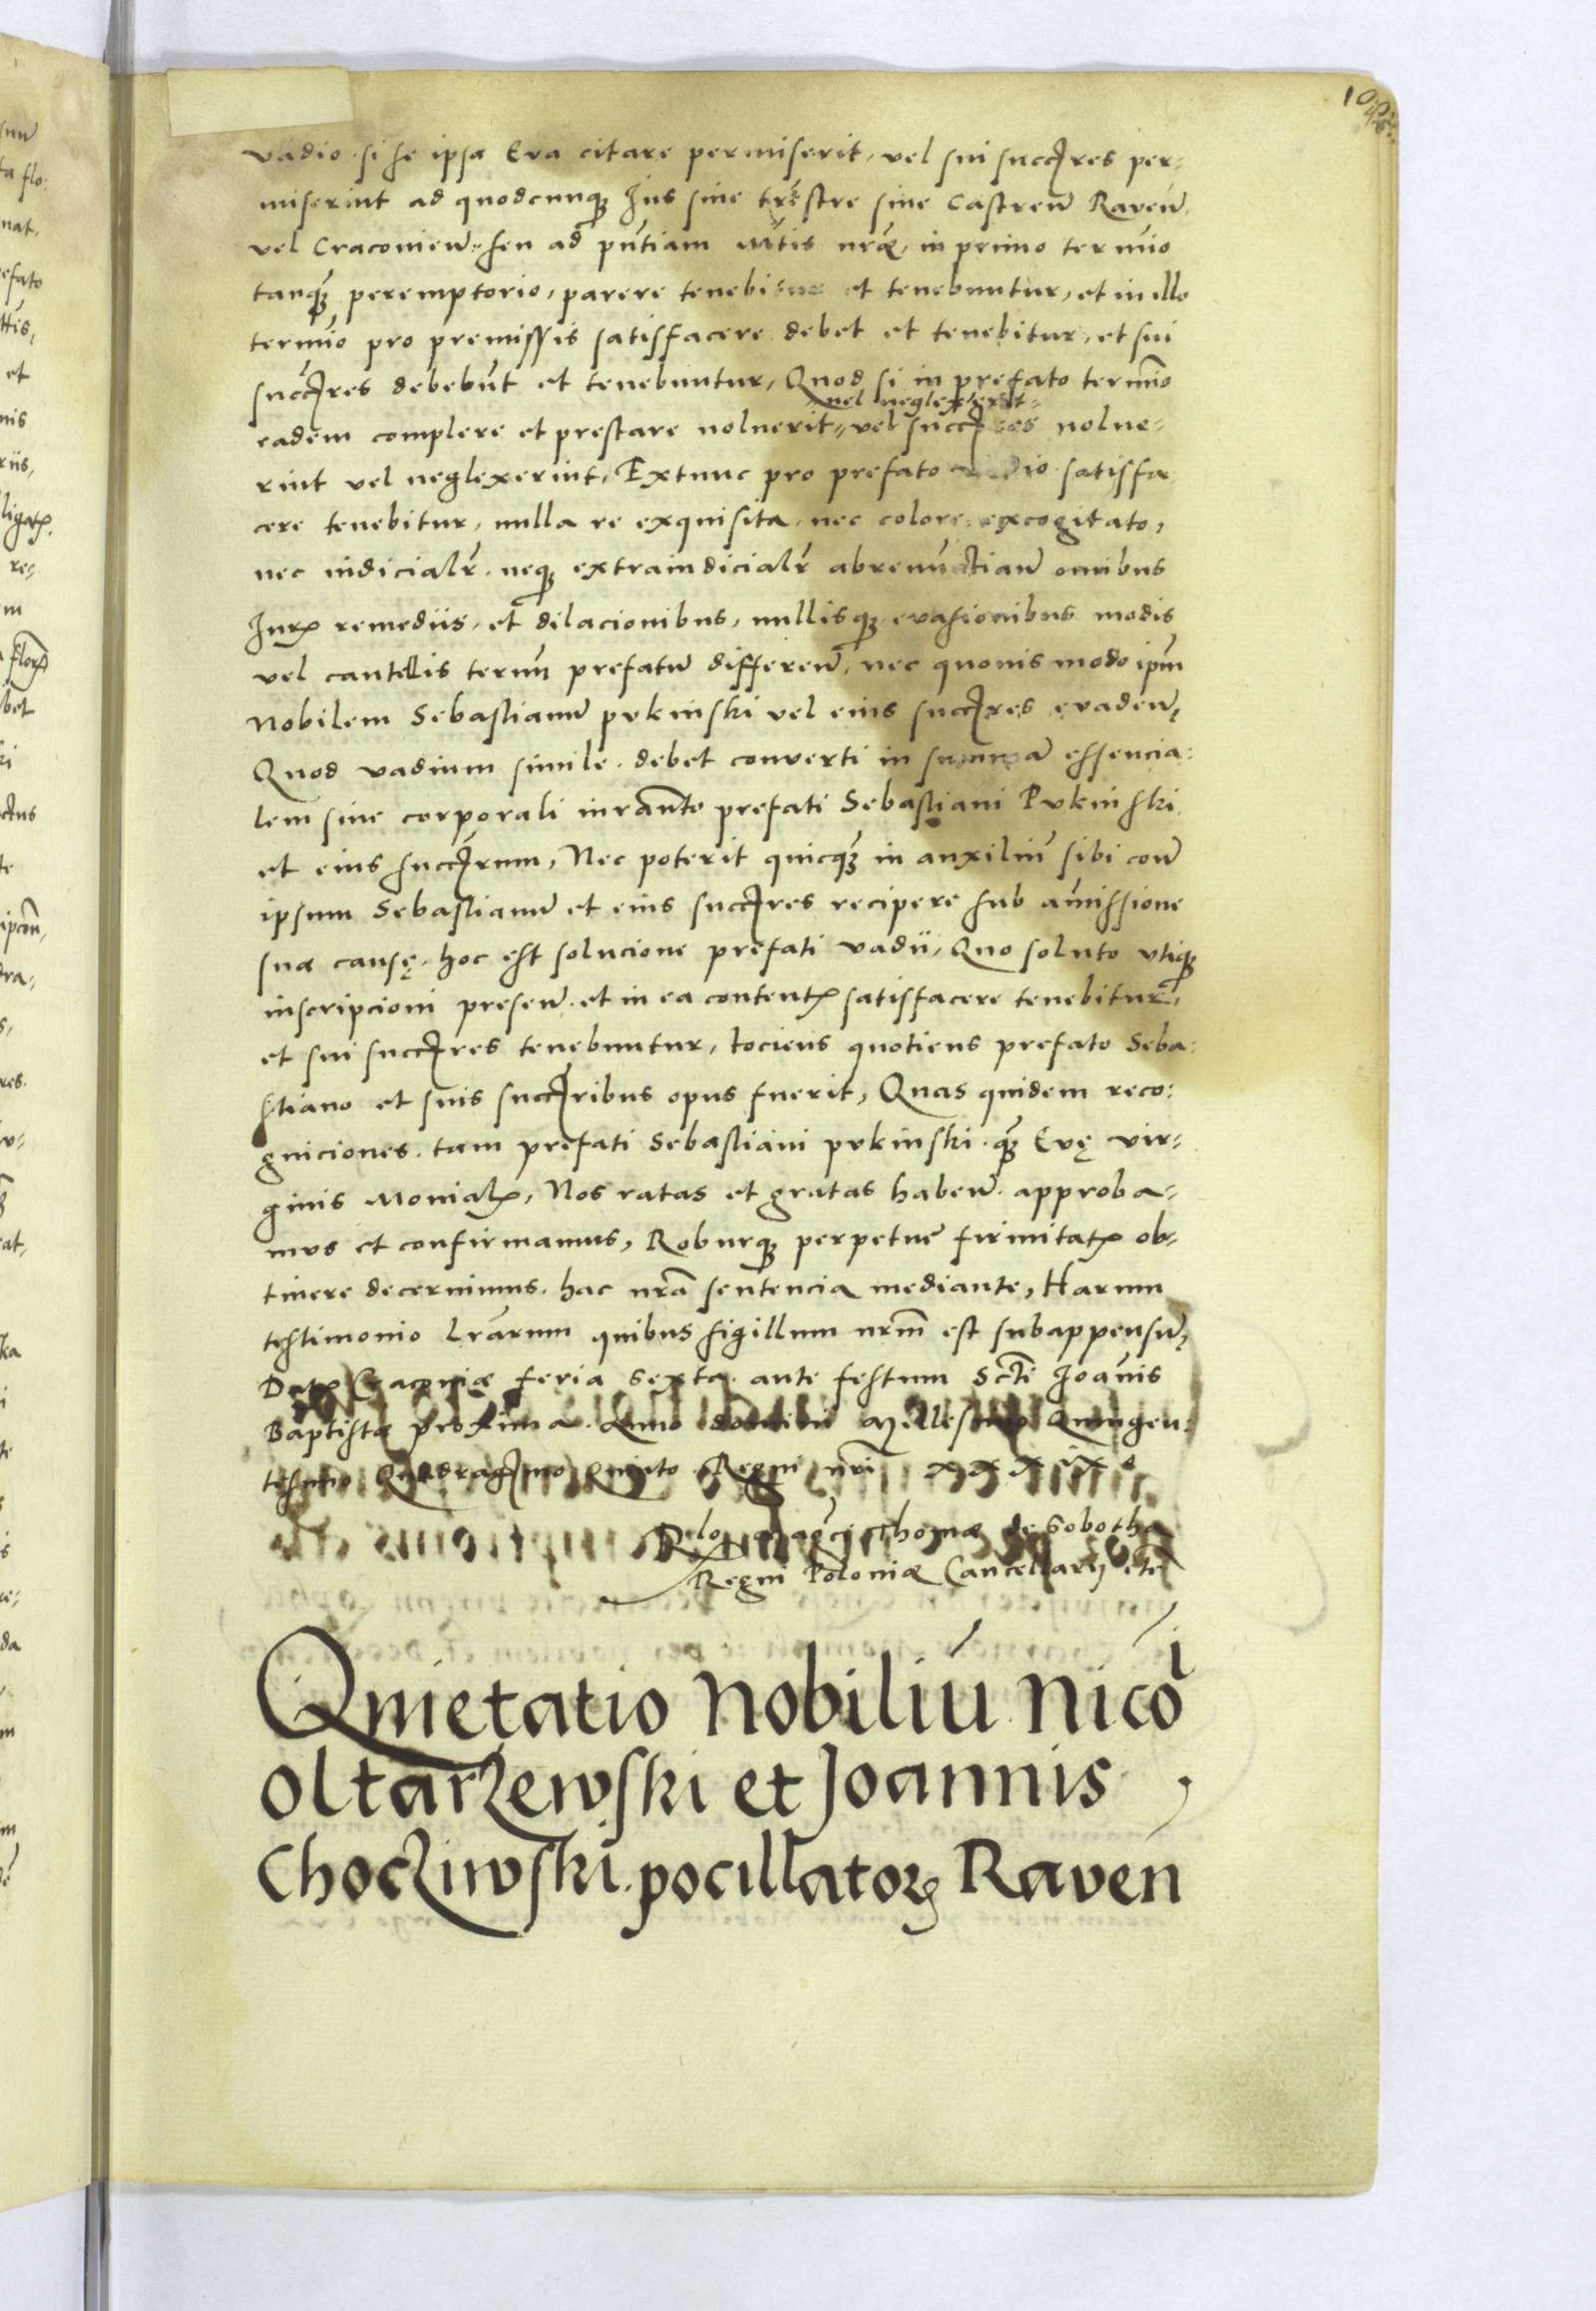 vadio. si se ipsa Eva citare permiserit, vel sui succẽres per-
miserint ad quodcunqꝫ Jus siue trẽstre siue Castreñ Raveñ.
vel Cracovieñ. seu ad pñtiam Mtis nrãe, in primo termĩo
tanqꝫ peremptorio, parere tenebitur et tenebuntur, et in illo
termĩo pro premissis satisfacere debet et tenebitur, et sui
succẽres debebũt et tenebuntur, Quod si in prefato termĩo
vel neglexerit
eadem complere et prestare noluerit, vel succẽres nolue-
rint vel neglexerint, Extunc pro prefato vadio satisfa
cere tenebitur, nulla re exquisita, nec colore excogitato,
nec iudicialr̃. neqꝫ extraiudicialr̃ abrenũctiañ omnibus
Jurꝭ remediis, et dilacionibus, nullisqꝫ evasionibus modis
vel cautelis termĩ prefatũ differeñ, nec quouis modo ipm̃
Nobilem Sebastianũ pukinski vel eius succẽres evadeñ,
Quod vadium simile. debet converti in summã essencia-
lem sine corporali iurañto prefati Sebastiani Pukinski.
et eius succẽrum, Nec poterit quicqꝫ in auxiliũ sibi coñ
ipsum Sebastianũ et eius succẽres recipere sub amissione
suæ causę. hoc est solucione prefati vadii, Quo soluto vtiqꝫ
inscripcioni preseñ. et in ea contentꝭ satisfacere tenebitur,
et sui succẽres tenebuntur, tociens quotiens prefato Seba-
stiano et suis succẽribus opus fuerit, Quas quidem reco-
gniciones. tam prefati Sebastiani pukinski. qꝫ Evę vir-
ginis Monialꝭ, Nos ratas et gratas habeñ. approba-
mus et confirmamus, Roburqꝫ perpetuẽ firmitatꝭ ob-
tinere decernimus. hac nrã sentencia mediante, Harum
testimonio lrãrum quibus sigillum nrm̃ est subappensũ,
Datꝭ Cracoviæ feria sexta. ante festum Scti Joañis
Baptistæ proxima. Anno domini Millesimo Quingen-
tesimo Quadragẽmo Quinto Regni nrĩ xxxix⁰
Rlo magci Thomæ de Sobotha
Regni Poloniæ Cancellarij etc
Quietatio Nobiliũ Nicol
Oltarzewski et Joannis
Chocziwski. pocillatorꝫ Raven